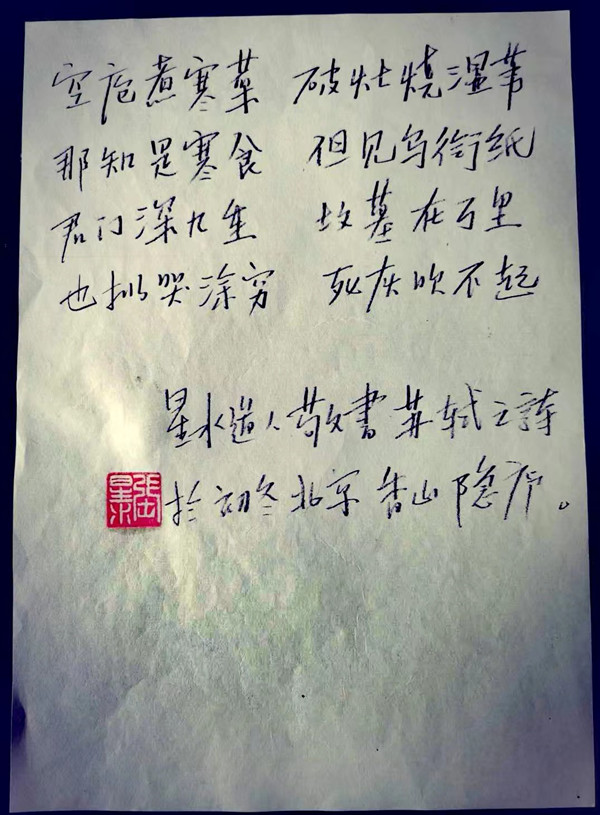 空庖煮寒菜 破灶烧湿苇
那知是寒食 但见乌衔纸
君门深九重 坟墓在万里
也拟哭涂穷 死灰吹不起
星水道人敬書苏轼之詩
張星水
於初冬北京香山隐庐。